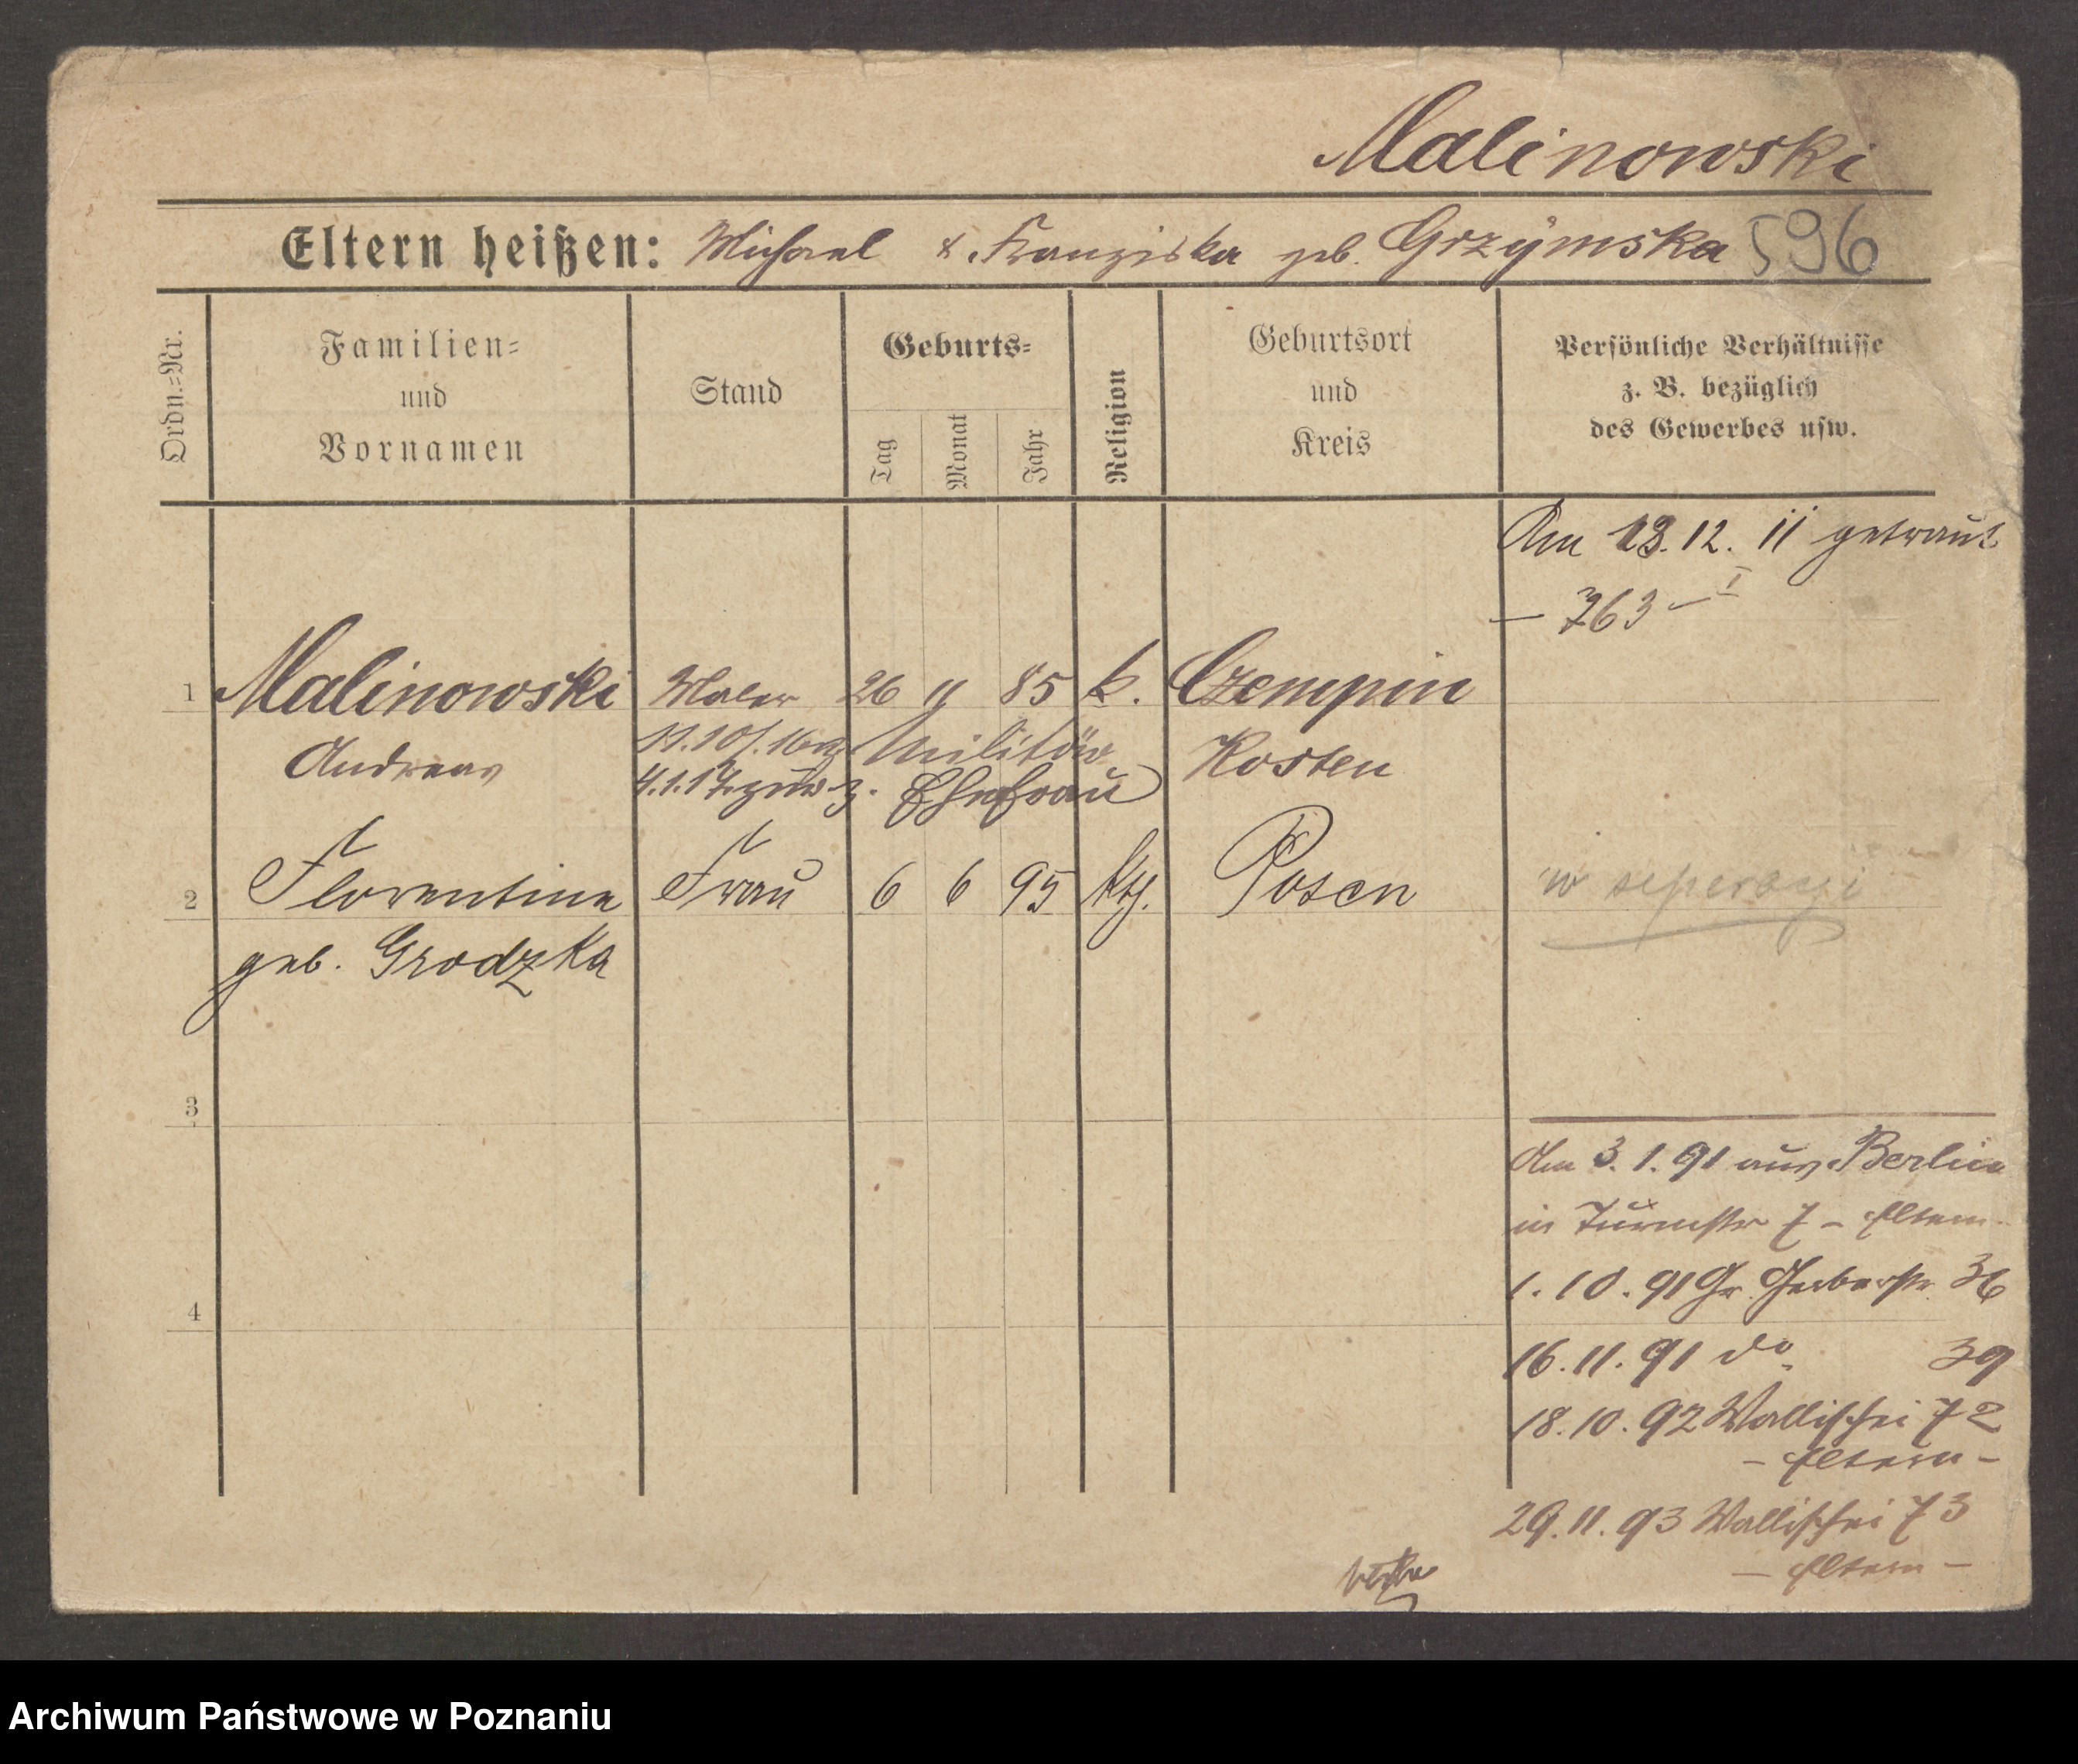 Malinowski
Eltern heißen: Michael & Franziska geb. Grzymska 596
Ordn.=Nr.
Familien=
und
Vornamen
Stand
Geburts=
Tag
Monat
Jahr
Religion
Geburtsort
und
Kreis
Persönliche Verhältnisse
z. B. bezüglich
des Gewerbes usw.
Am 13.12.11 getraut
— 763 — I
1 Malinowski Maler 26 11 85 k. Czempin
Andreas
Militär
Kosten
4.1.17 zur z. Ehefrau
2 Florentine Frau 6 6 95 kth. Posen
w seperacji
geb. Grodzka
3
Am 3.1.91 aus Berlin
in Turmstr 7 – Eltern
1.10.91 Gr. Gerberstr. 36
4
16.11.91 do. 39
18.10.92 Wallischei 72
– Eltern –
29.11.93 Wallischei 73
– Eltern –
Archiwum Państwowe w Poznaniu